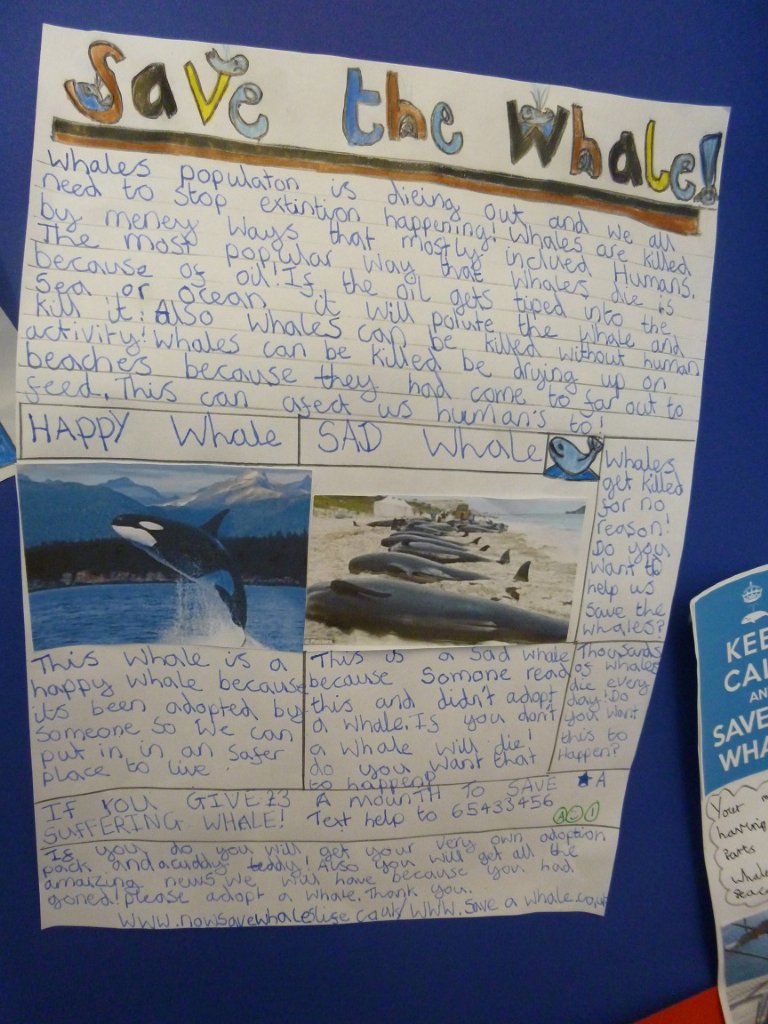 Save the Whale!
Whales populaton is dieing out and we all
need to stop extintion happening! Whales are killed
by meney ways that mostly inclued Humans.
The most popular way that whales die is
because of oil! If the oil gets tiped into the
sea or ocean it will polute the whale and
kill it. Also whales can be killed without human
activity! Whales can be killed be drying up on
beaches because they had come to far out to
feed. This can afect us human's to!
HAPPY Whale
SAD Whale
Whales
get killed
for no
reason!
Do you
want to
help us
save the
whales?
Thousands
of whales
die every
day! Do
you want
this to
Happen?
This Whale is a
happy whale because
its been adopted by
someone so we can
put in in an safer
place to live.
This is a sad whale
because Somone read
this and didn't adopt
a whale. If you don't
a whale will die!
do you want that
to happenp
IF YOU GIVE £3 A MOUNTH TO SAVE
SUFFERING WHALE! Text help to 65433456
A
If you do you will get your very own adoption
pack and a cuddy teddy! Also you will get all the
amaizing news we will have because you had
joned! please adopt a whale. Thank you.
www.nowsavewhaleslife.co.uk/www.save a whale.co.uk
KEEP
CAL
AN
SAVE
WHA
Your m
having
parts
whale